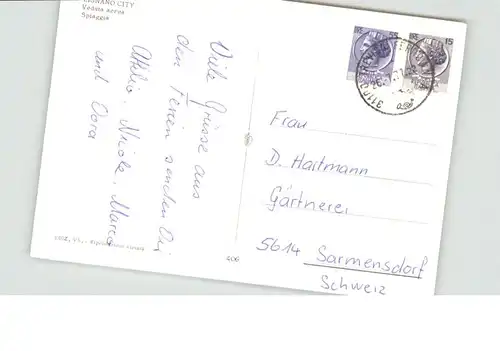 LIGNANO CITY
Veduta aerea
Spiaggia
Viele Grüsse aus
den Ferien senden Dir
Attilio, Nicole, Marco
und Dora
406
15
Frau
D. Hartmann
Gärtnerei
5614 Sarmensdorf
Schweiz